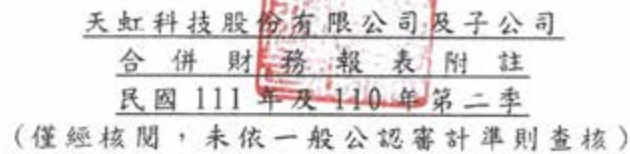 天虹科技股份有限公司及子公司
合併財務報表附註
民國 111 年及 110 年第二季
(僅經核閱，未依一般公認審計準則查核)